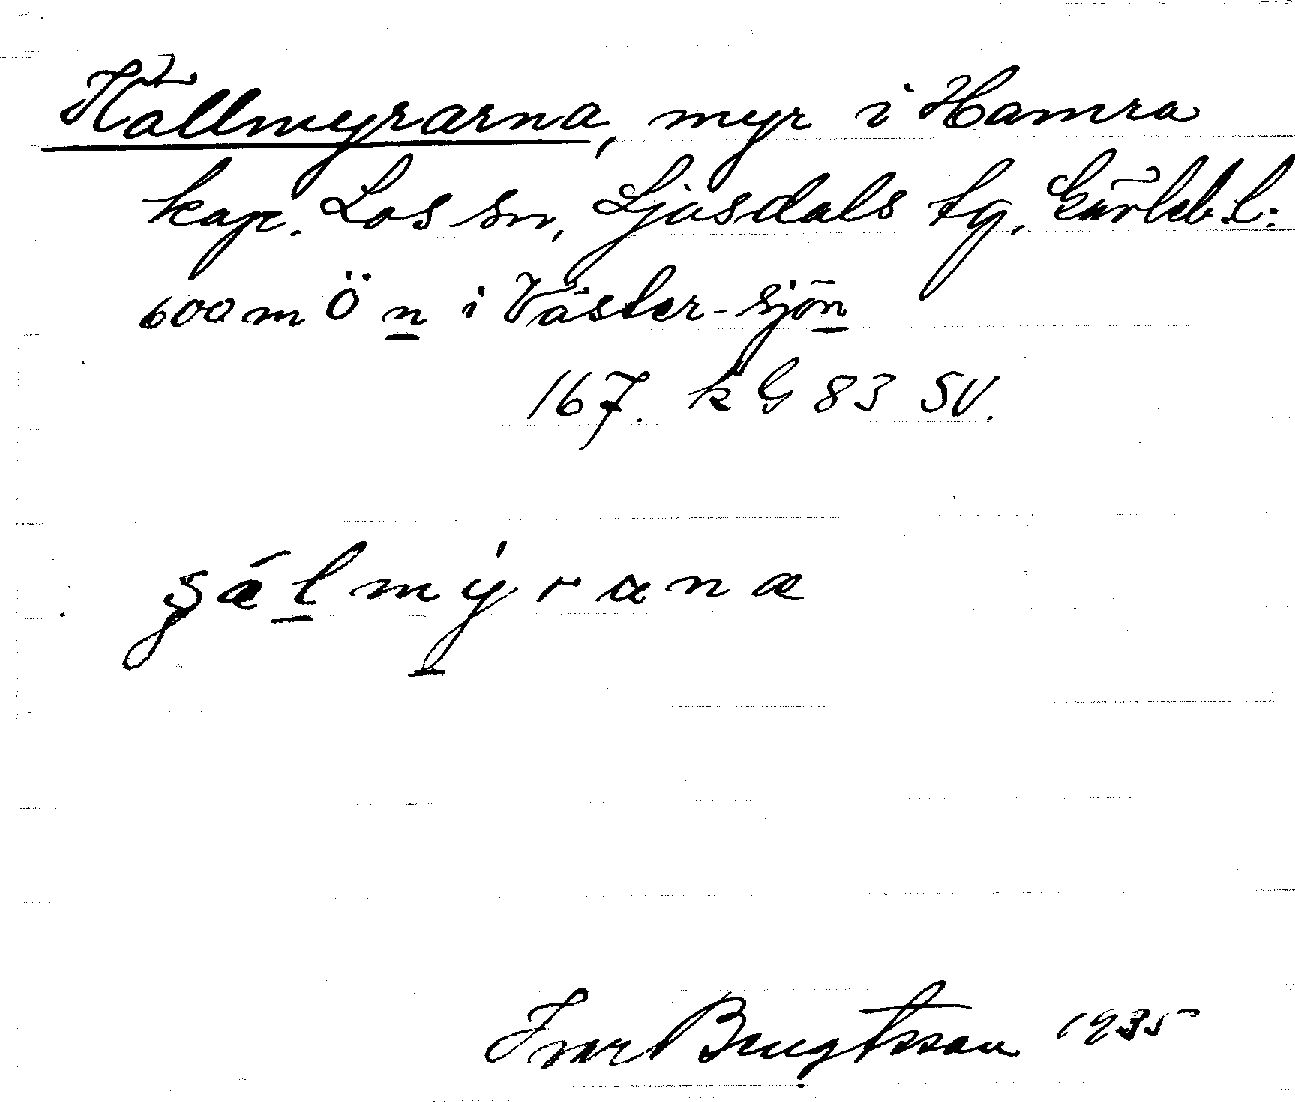 Hällmyrarna, myr i Hamra
kap. Los sn, Ljusdals tg, Gävleb. l:
600 m Ö n i Väster-sjön
167. k G 83 SV.
g̃álmýrana
Ivar Bengtsson 1935